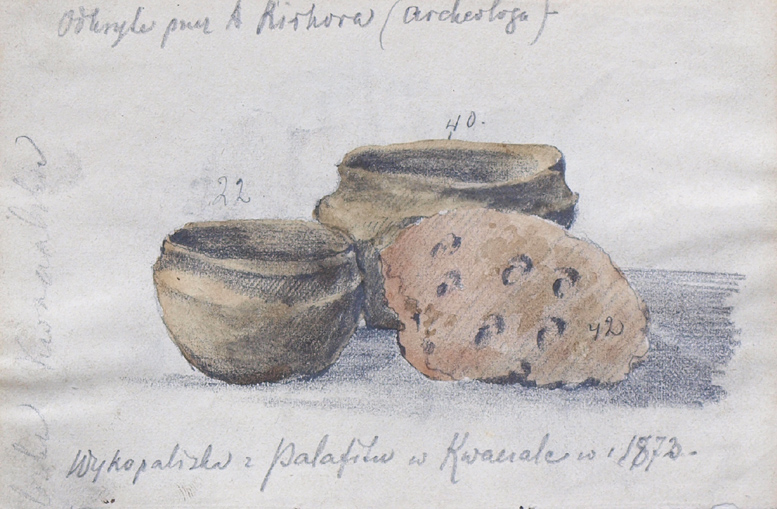 Odkryte przez A Kirkora (archeologa)
40.
22
42
Wykopaliska z Palafitu w Kwaczale w 1873.